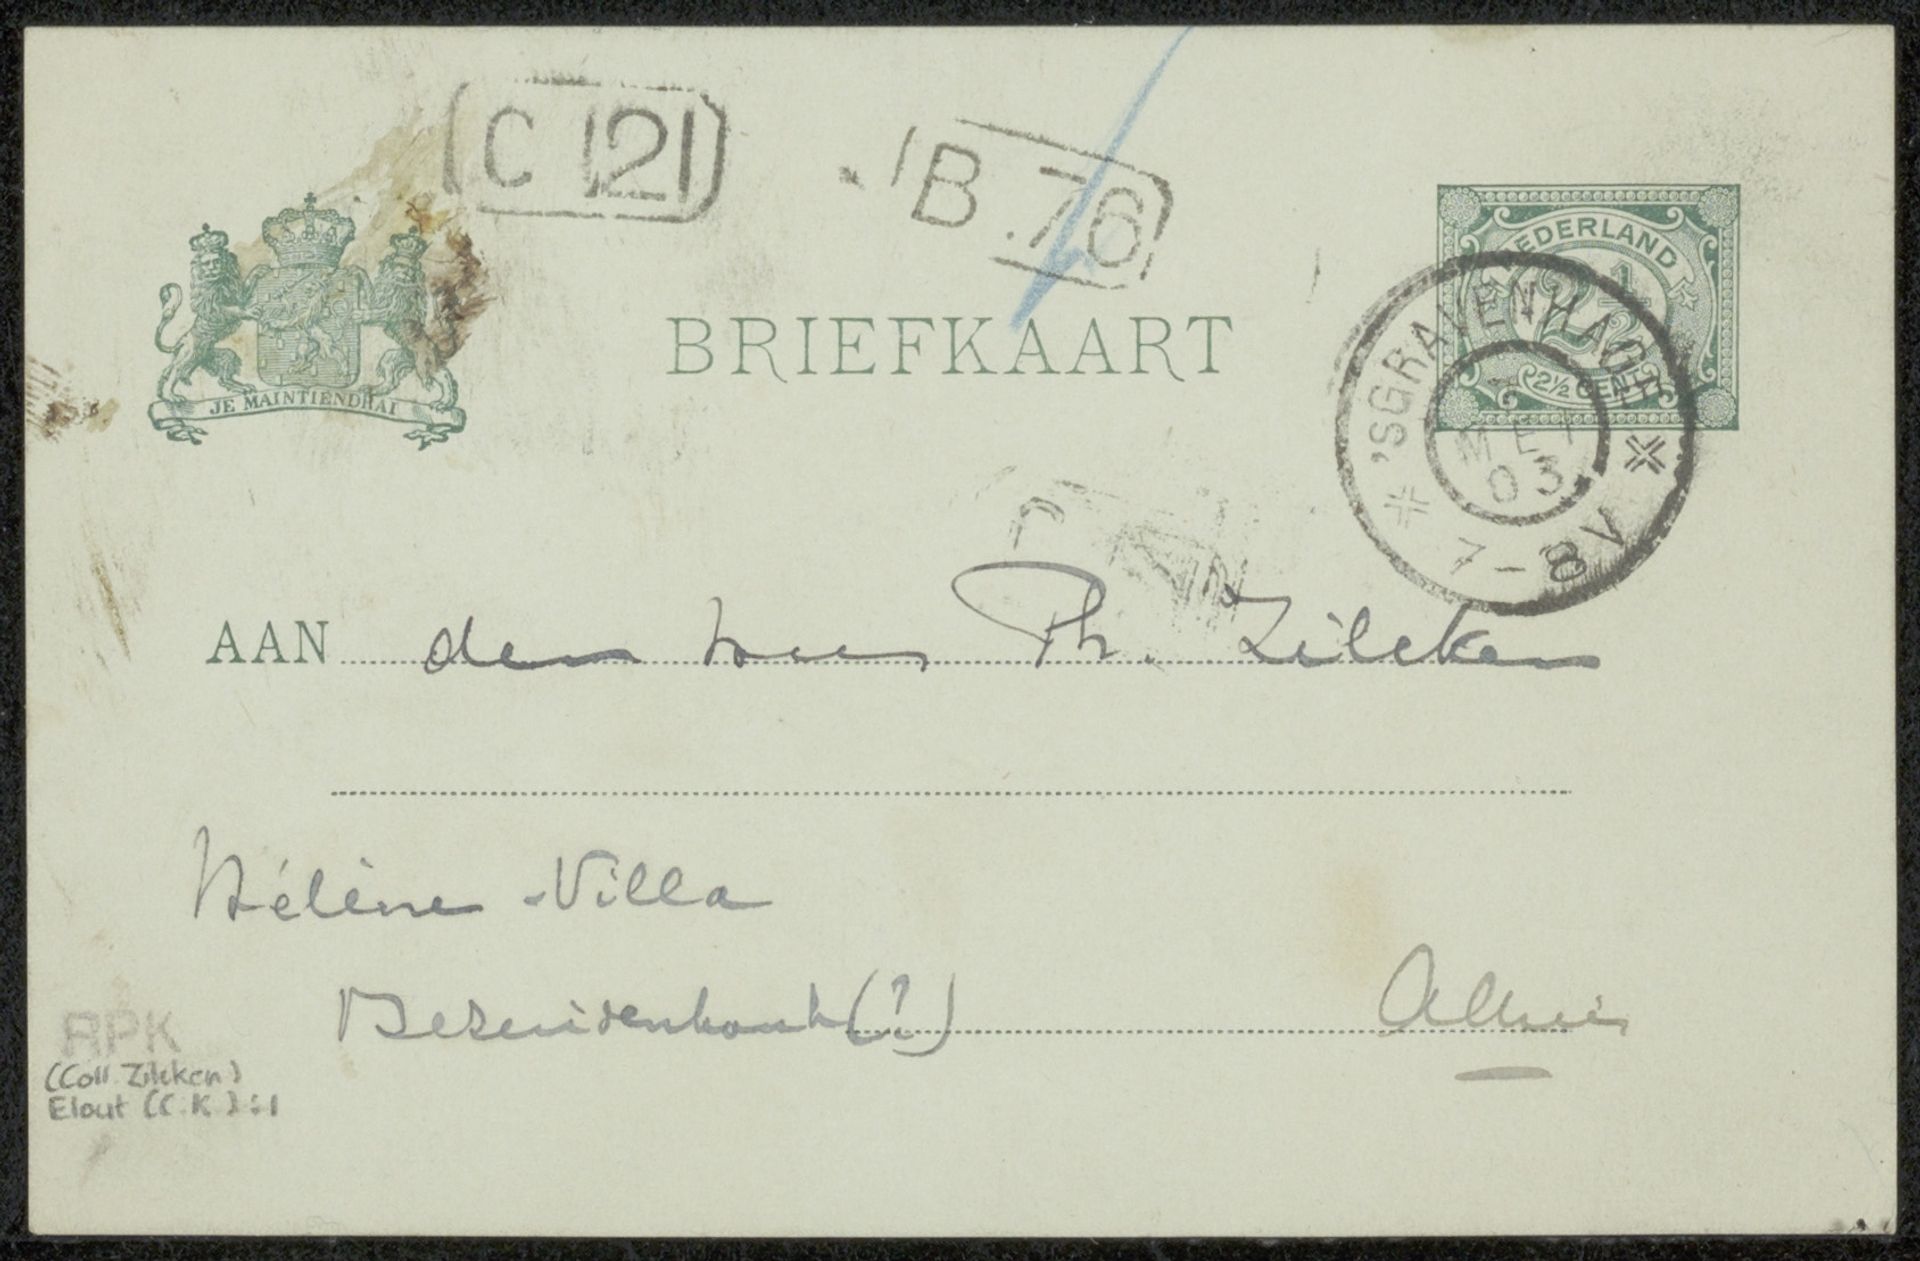 C 121
B.76
NEDERLAND
2½
2½ CENT
BRIEFKAART
JE MAINTIENDRAI
'SGRAVENHAGE
MEI
03
7-8V
AAN den heer Ph. Zilcken
Hélène-Villa
Bezuidenhout (?) Alhier
RPK
(Coll. Zilcken)
Elout (C.K.):1